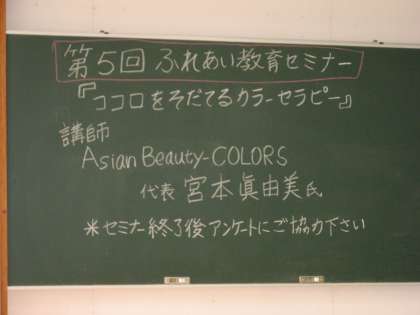 第5回 ふれあい教育セミナー
『ココロをそだてるカラーセラピー』
講師
Asian Beauty-COLORS
代表 宮本眞由美氏
*セミナー終了後アンケートにご協力下さい